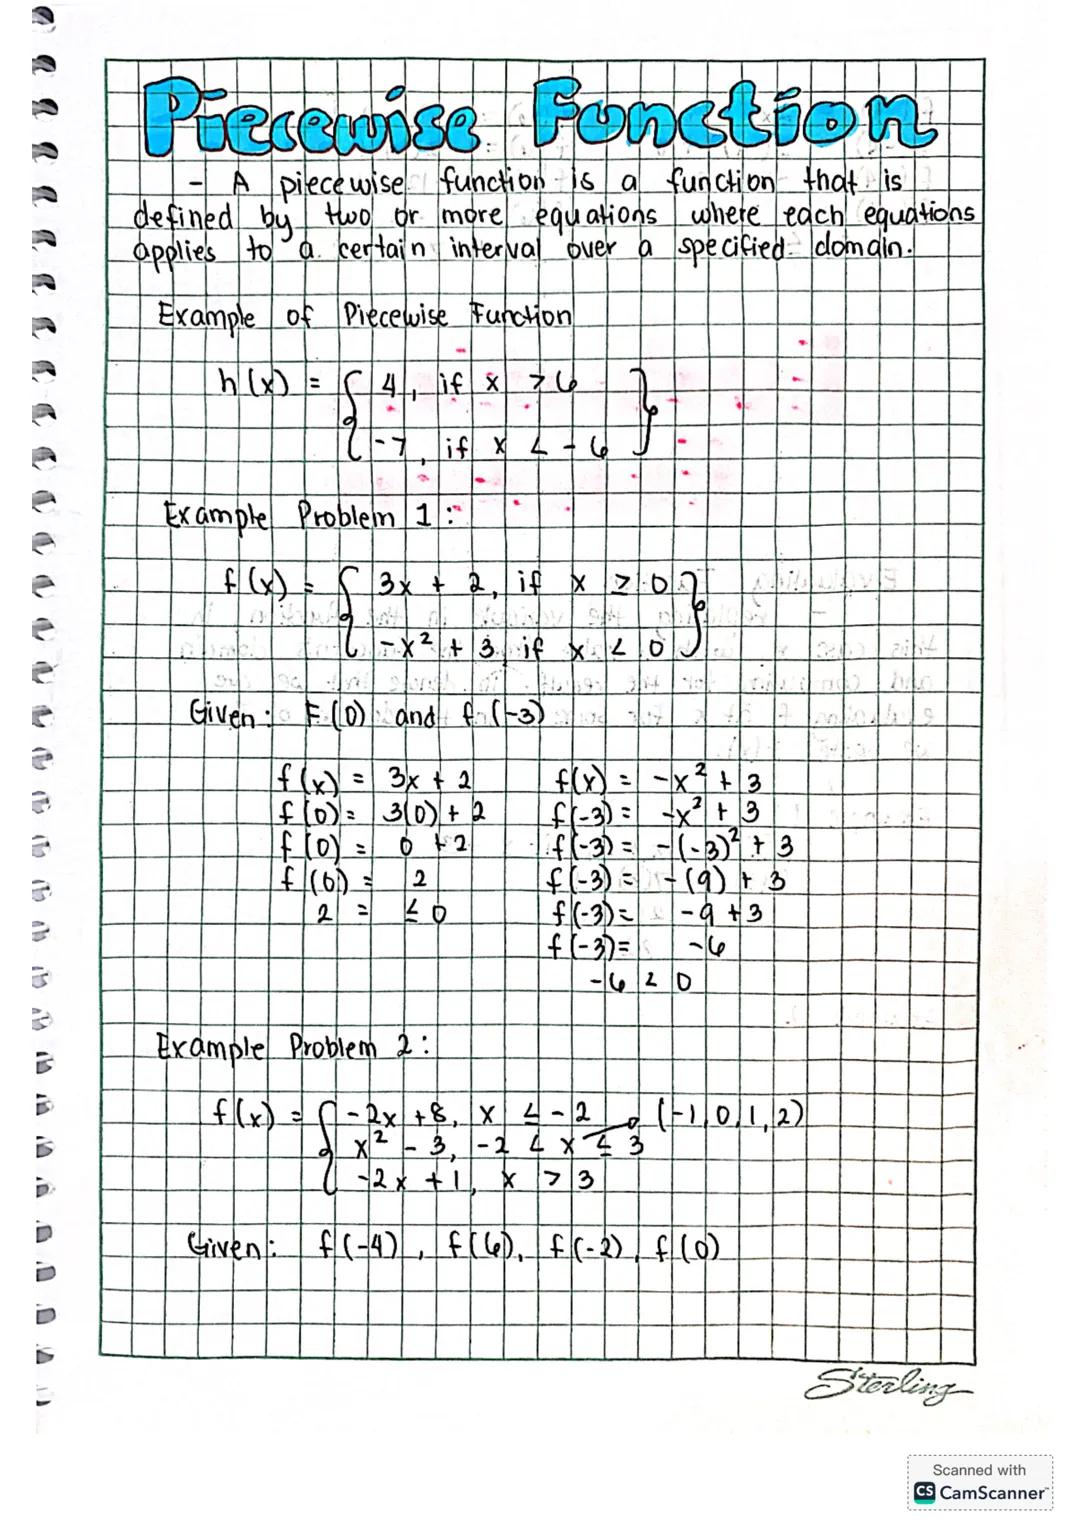 Piecewise Function
- A piecewise function is a function that is
defined by two or more equations where each equations
applies to a certain interval over a specified domain.
Example of Piecewise Function
h(x) = { 4, if x > 6
-7, if x < -6 }
Example Problem 1:
f(x) = { 3x + 2, if x ≥ 0
-x² + 3, if x < 0 }
Given: F(0) and f(-3)
f(x) = 3x + 2 f(x) = -x² + 3
f(0) = 3(0) + 2 f(-3) = -x² + 3
f(0) = 0 + 2 f(-3) = -(-3)² + 3
f(0) = 2 f(-3) = -(9) + 3
2 = ≤ 0 f(-3) = -9 + 3
f(-3) = -6
-6 < 0
Example Problem 2:
f(x) = { -2x + 8, x ≤ -2 (-1,0,1,2)
x² - 3, -2 < x ≤ 3
-2x + 1, x > 3
Given: f(-4), f(6), f(-2), f(0)
Sterling
Scanned with
CS CamScanner